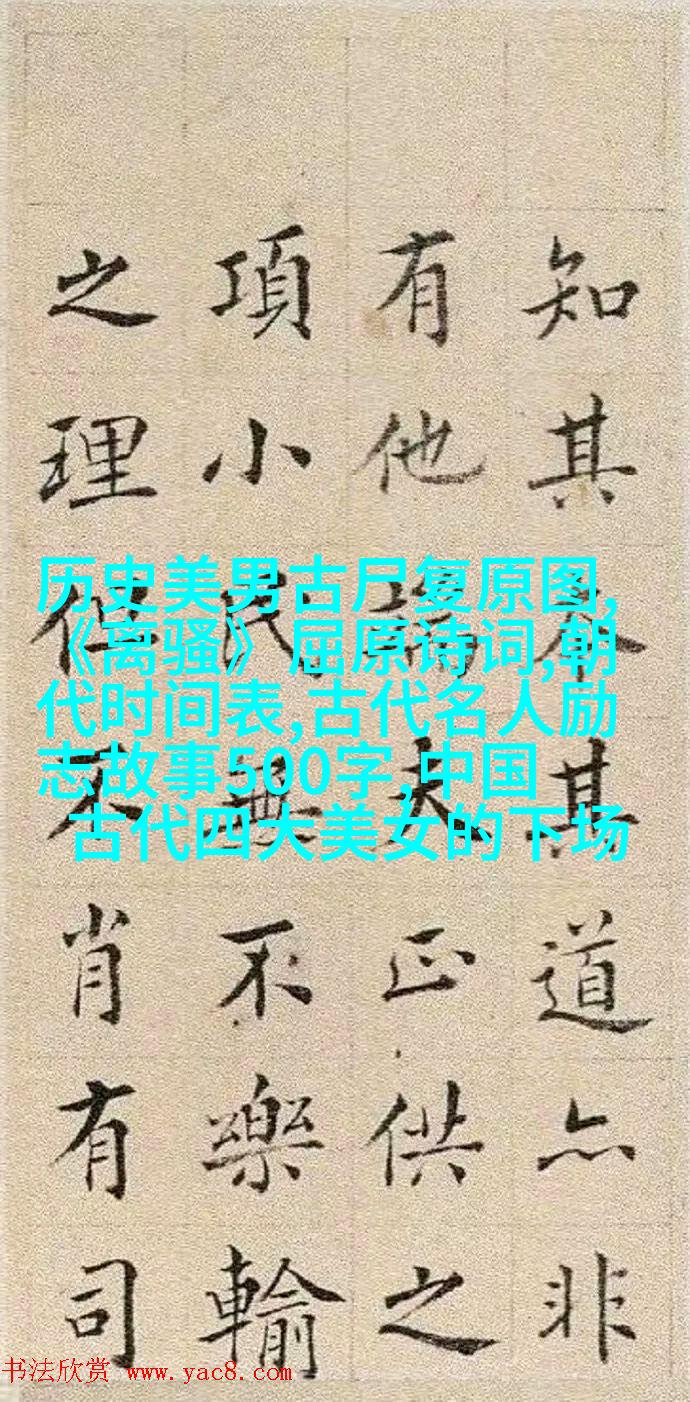 知其其道亦非
有他端夫正供之
項小民無不樂輸
之理但不肖有司
历史美男古尸复原图,
《离骚》屈原诗词,朝
代时间表,古代名人励
志故事500字,中国
古代四大美女的下场
书法欣赏 www.yac8.com